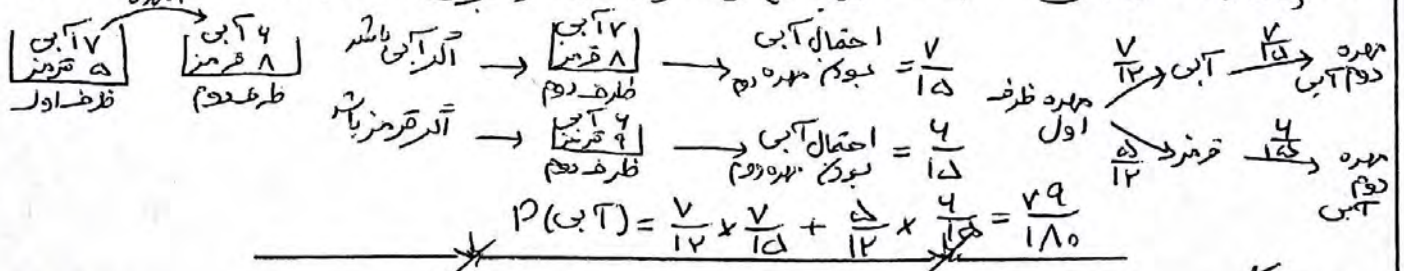 ۷ آبی
۵ قرمز
ظرف اول
۶ آبی
۸ قرمز
ظرف دوم
اگر آبی باشد → ۷ آبی
۸ قرمز
ظرف دوم
→ احتمال آبی بودن مهره دوم = ۷/۱۵
اگر قرمز باشد → ۶ آبی
۹ قرمز
ظرف دوم
→ احتمال آبی بودن مهره دوم = ۶/۱۵
مهره ظرف اول
۷/۱۲ آبی ۷/۱۵ → مهره دوم آبی
۵/۱۲ قرمز ۶/۱۵ → مهره دوم آبی
P(آبی) = ۷/۱۲ × ۷/۱۵ + ۵/۱۲ × ۶/۱۵ = ۷۹/۱۸۰